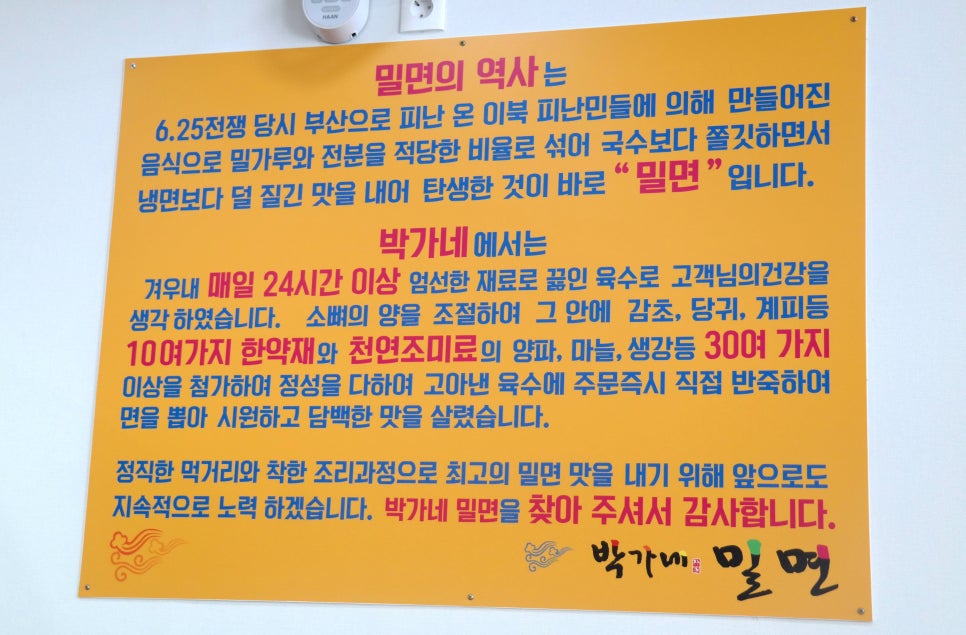 HAAN
밀면의 역사는
6.25전쟁 당시 부산으로 피난 온 이북 피난민들에 의해 만들어진
음식으로 밀가루와 전분을 적당한 비율로 섞어 국수보다 쫄깃하면서
냉면보다 덜 질긴 맛을 내어 탄생한 것이 바로 “밀면” 입니다.
박가네에서는
겨우내 매일 24시간 이상 엄선한 재료로 끓인 육수로 고객님의건강을
생각 하였습니다. 소뼈의 양을 조절하여 그 안에 감초, 당귀, 계피등
10여가지 한약재와 천연조미료의 양파, 마늘, 생강등 30여 가지
이상을 첨가하여 정성을 다하여 고아낸 육수에 주문즉시 직접 반죽하여
면을 뽑아 시원하고 담백한 맛을 살렸습니다.
정직한 먹거리와 착한 조리과정으로 최고의 밀면 맛을 내기 위해 앞으로도
지속적으로 노력 하겠습니다. 박가네 밀면을 찾아 주셔서 감사합니다.
박가네 밀면